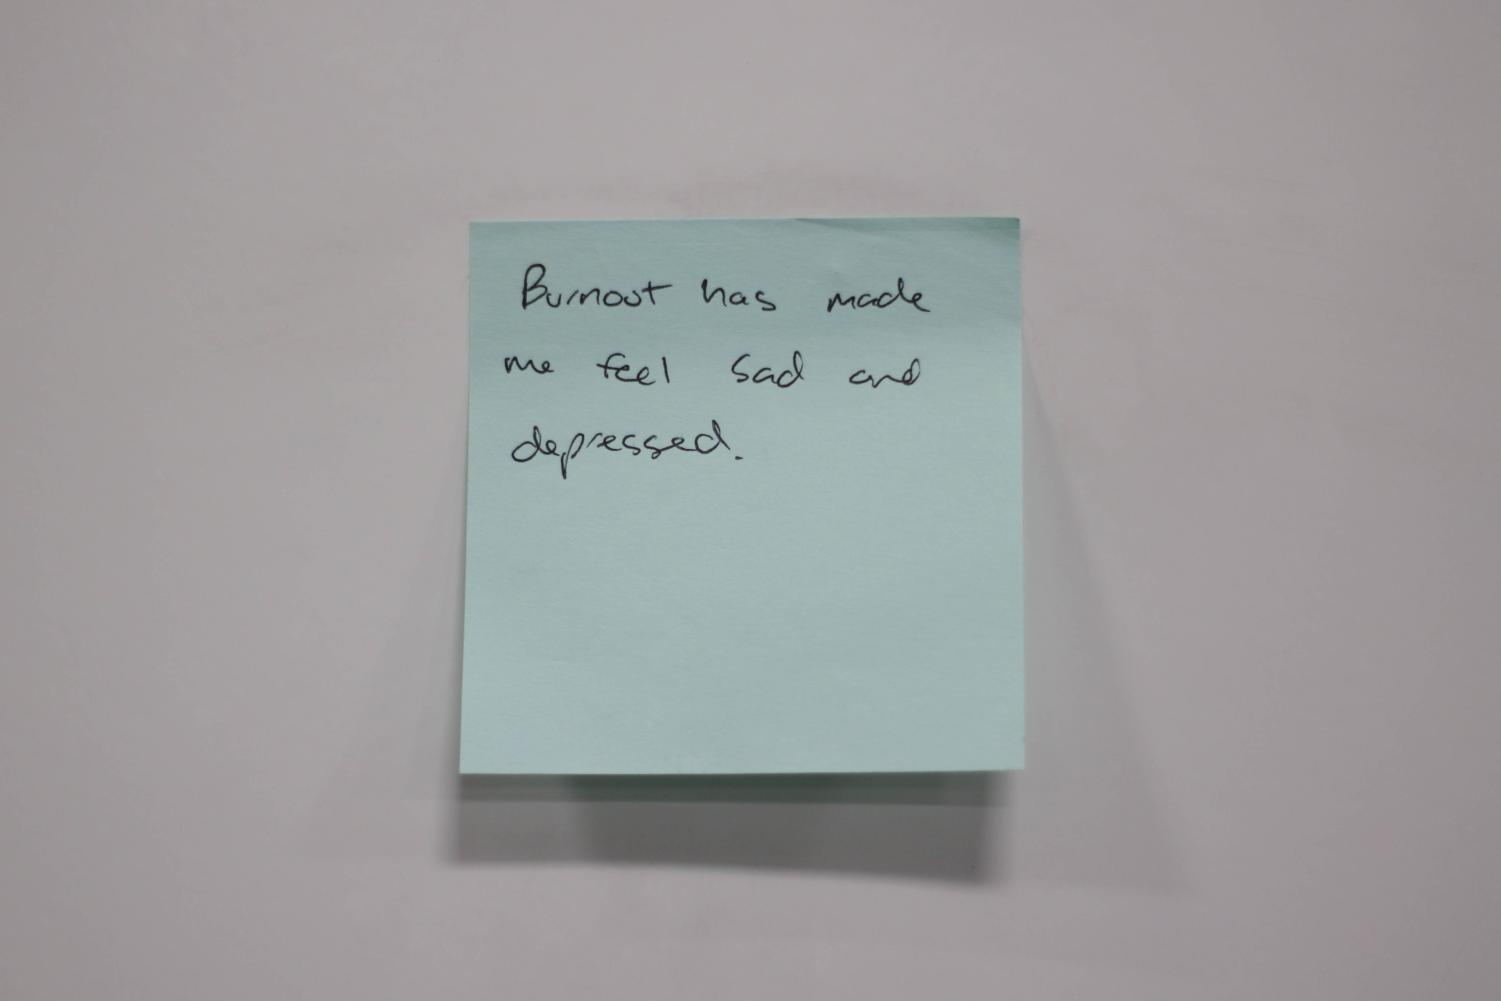 Burnout has made
me feel sad and
depressed.